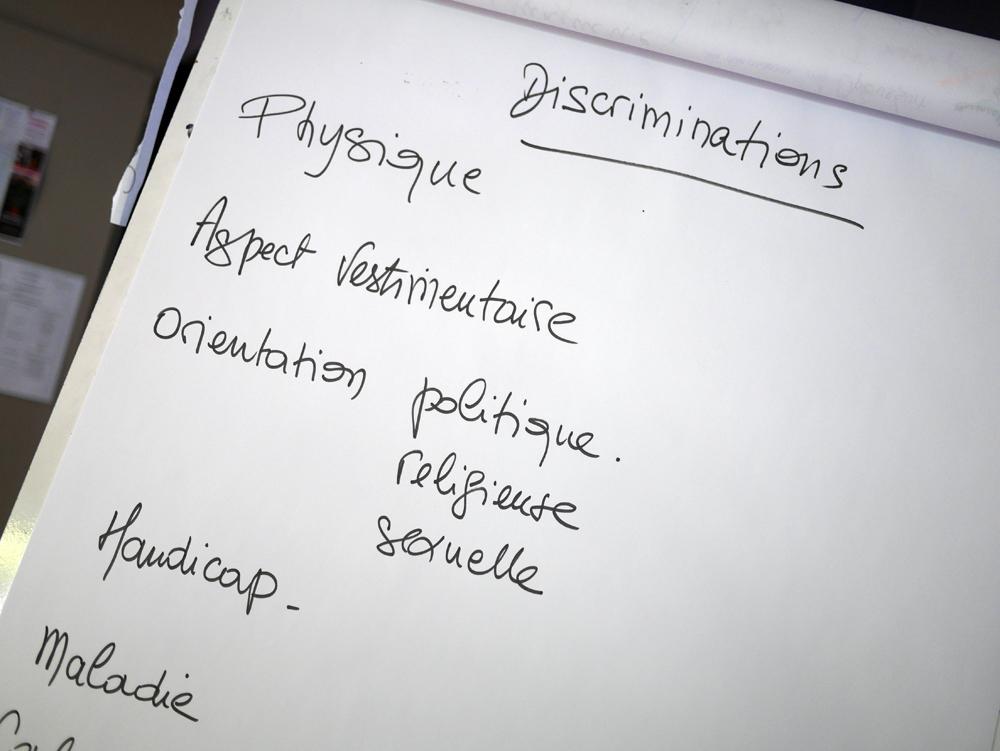 Discriminations
Physique
Aspect Vestimentaire
Orientation politique.
religieuse
sexuelle
Handicap -
Maladie